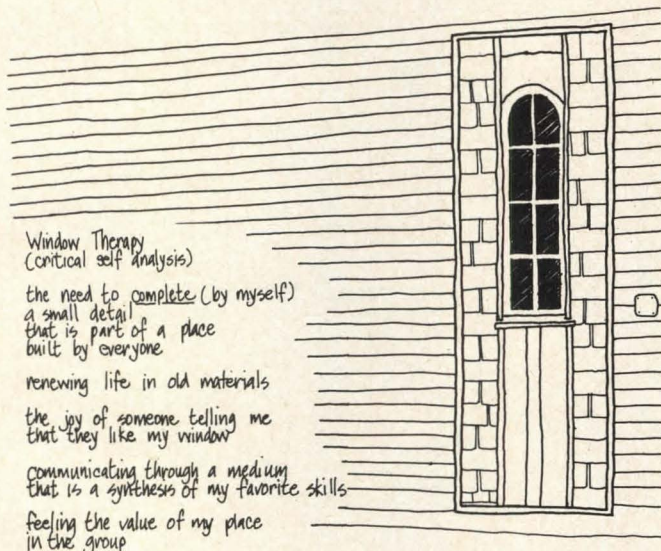 Window Therapy
(critical self analysis)
the need to complete (by myself)
a small detail
that is part of a place
built by everyone
renewing life in old materials
the joy of someone telling me
that they like my window
communicating through a medium
that is a synthesis of my favorite skills
feeling the value of my place
in the group